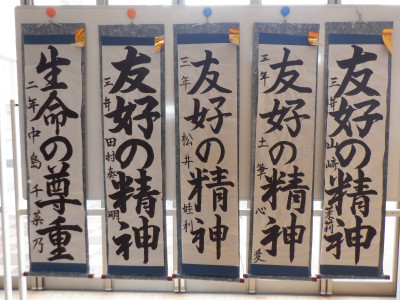 友好の精神
三年 山崎茉莉
友好の精神
三年 土箪心愛
友好の精神
三年 松井娃利
友好の精神
三年 田村泰明
生命の尊重
二年 中島千菜乃